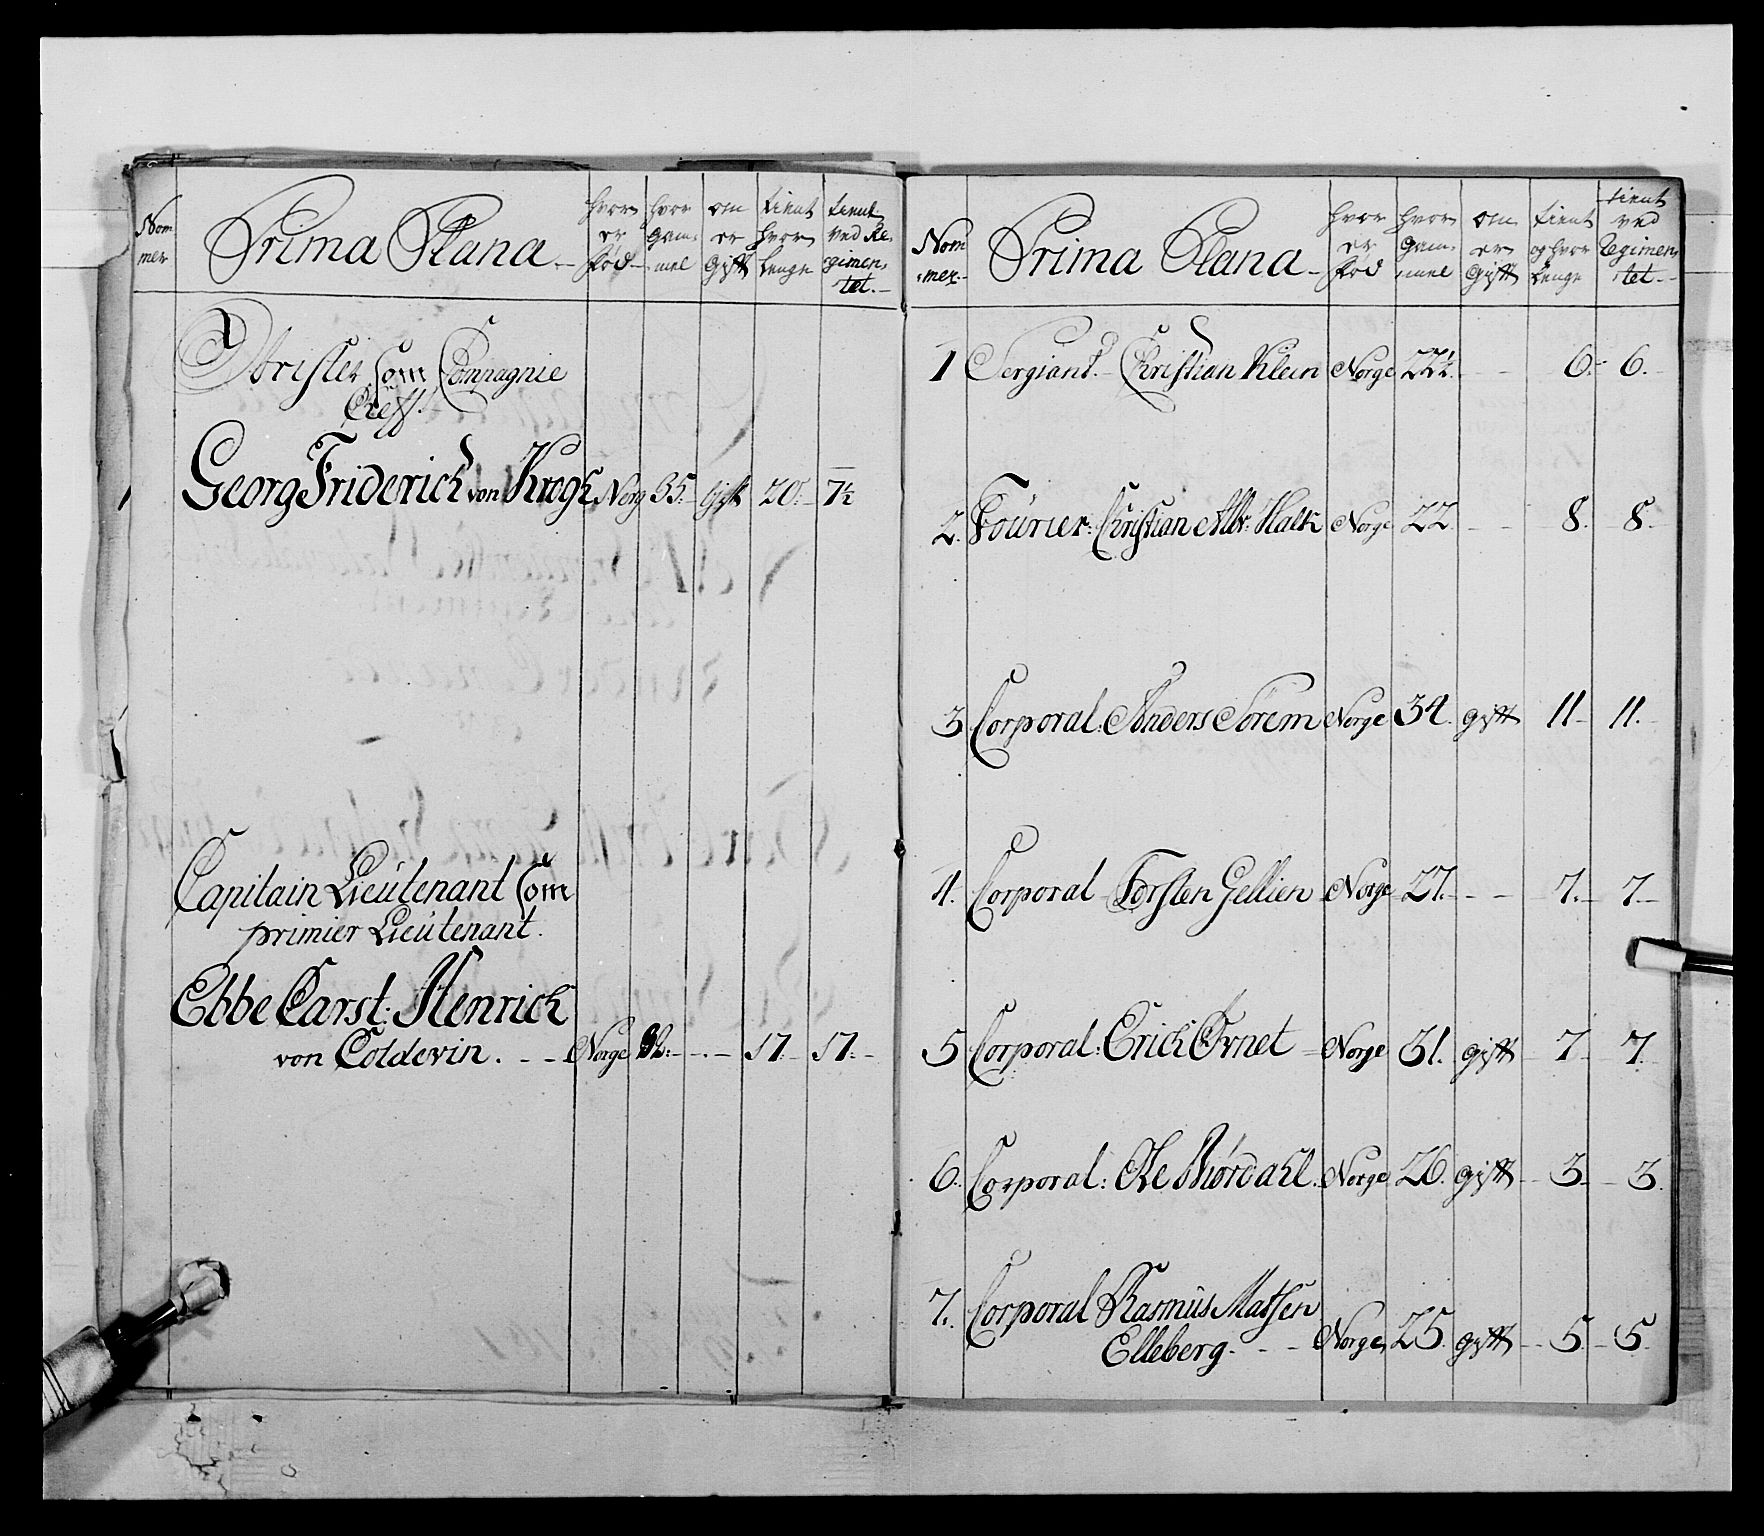 Nom
mer
Prima Plana
hvor
er
fød
hvor
gam
mel
om
er
gift
tient
hvor
lenge
tient
ved Re
gimen
tet.
Obrister som Compagnie
Cheff.
Georg Friderich von Krogh Norg 35. Gift 20. 7½
Capitain Lieutenant som
primier Lieutenant.
Ebbe Carst: Henrich
von Coldevin. Norge 32. 17. 17.
Nom
mer.
Prima Plana
hvor
er
fød
hvor
gam
mel
om
er
gift
tient
og hvor
lenge
tient
ved
Regimen
tet.
1 Sergiant. Christian Klein Norge 22½. 6. 6.
2. Fourier: Christian Albr: Kalk Norge 22 8. 8.
3 Corporal: Anders Sorem Norge 34. gift 11 11.
4. Corporal Torsten Gellien Norge 27. 7. 7.
5 Corporal: Erich Ornet Norge 31. gift 7 7.
6. Corporal: Ole Biørdahl. Norge 26. gift 3. 3.
7. Corporal Rasmus Matsen
Elleberg. Norge 25. gift 5. 5.